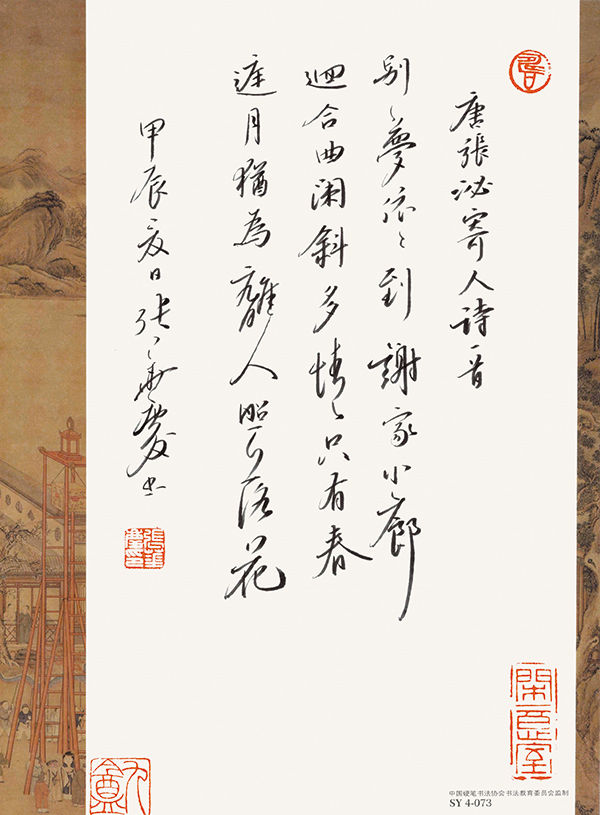 唐張泌寄人詩一首
别〻夢依〻到謝家小廊
迴合曲闌斜多情〻只有春
庭月猶為離人照落花
甲辰夏日張華慶書
中国硬笔书法协会书法教育委员会监制
SY 4-073